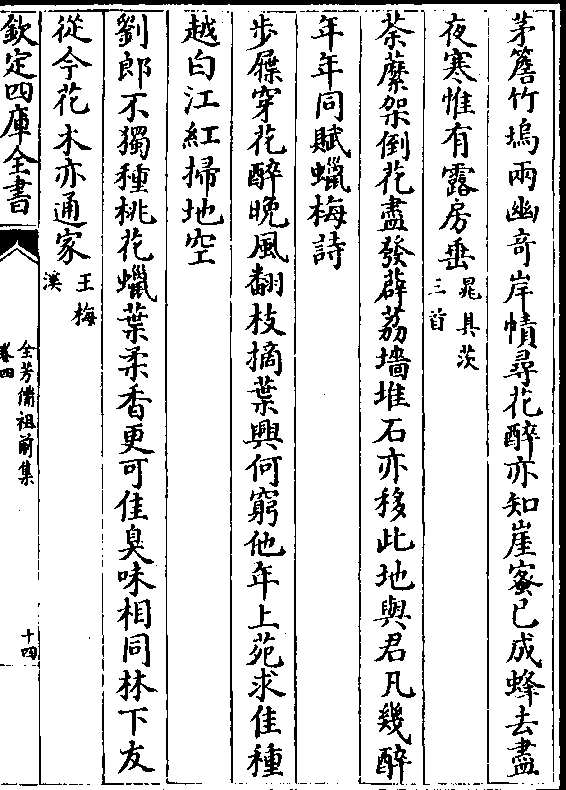 茅簷竹塢兩幽奇岸幘尋花醉亦知崖蜜已成蜂去盡
夜寒惟有露房垂晁具茨三首
荼蘼架倒花盡發薜荔墻堆石亦移此地與君凡幾醉
年年同賦蠟梅詩
步屧穿花醉晚風翻枝摘葉興何窮他年上苑求佳種
越白江紅掃地空
劉郎不獨種桃花蠟葉柔香更可佳臭味相同林下友
從今花木亦通家王梅溪
欽定四庫全書
全芳備祖前集
卷四
十四